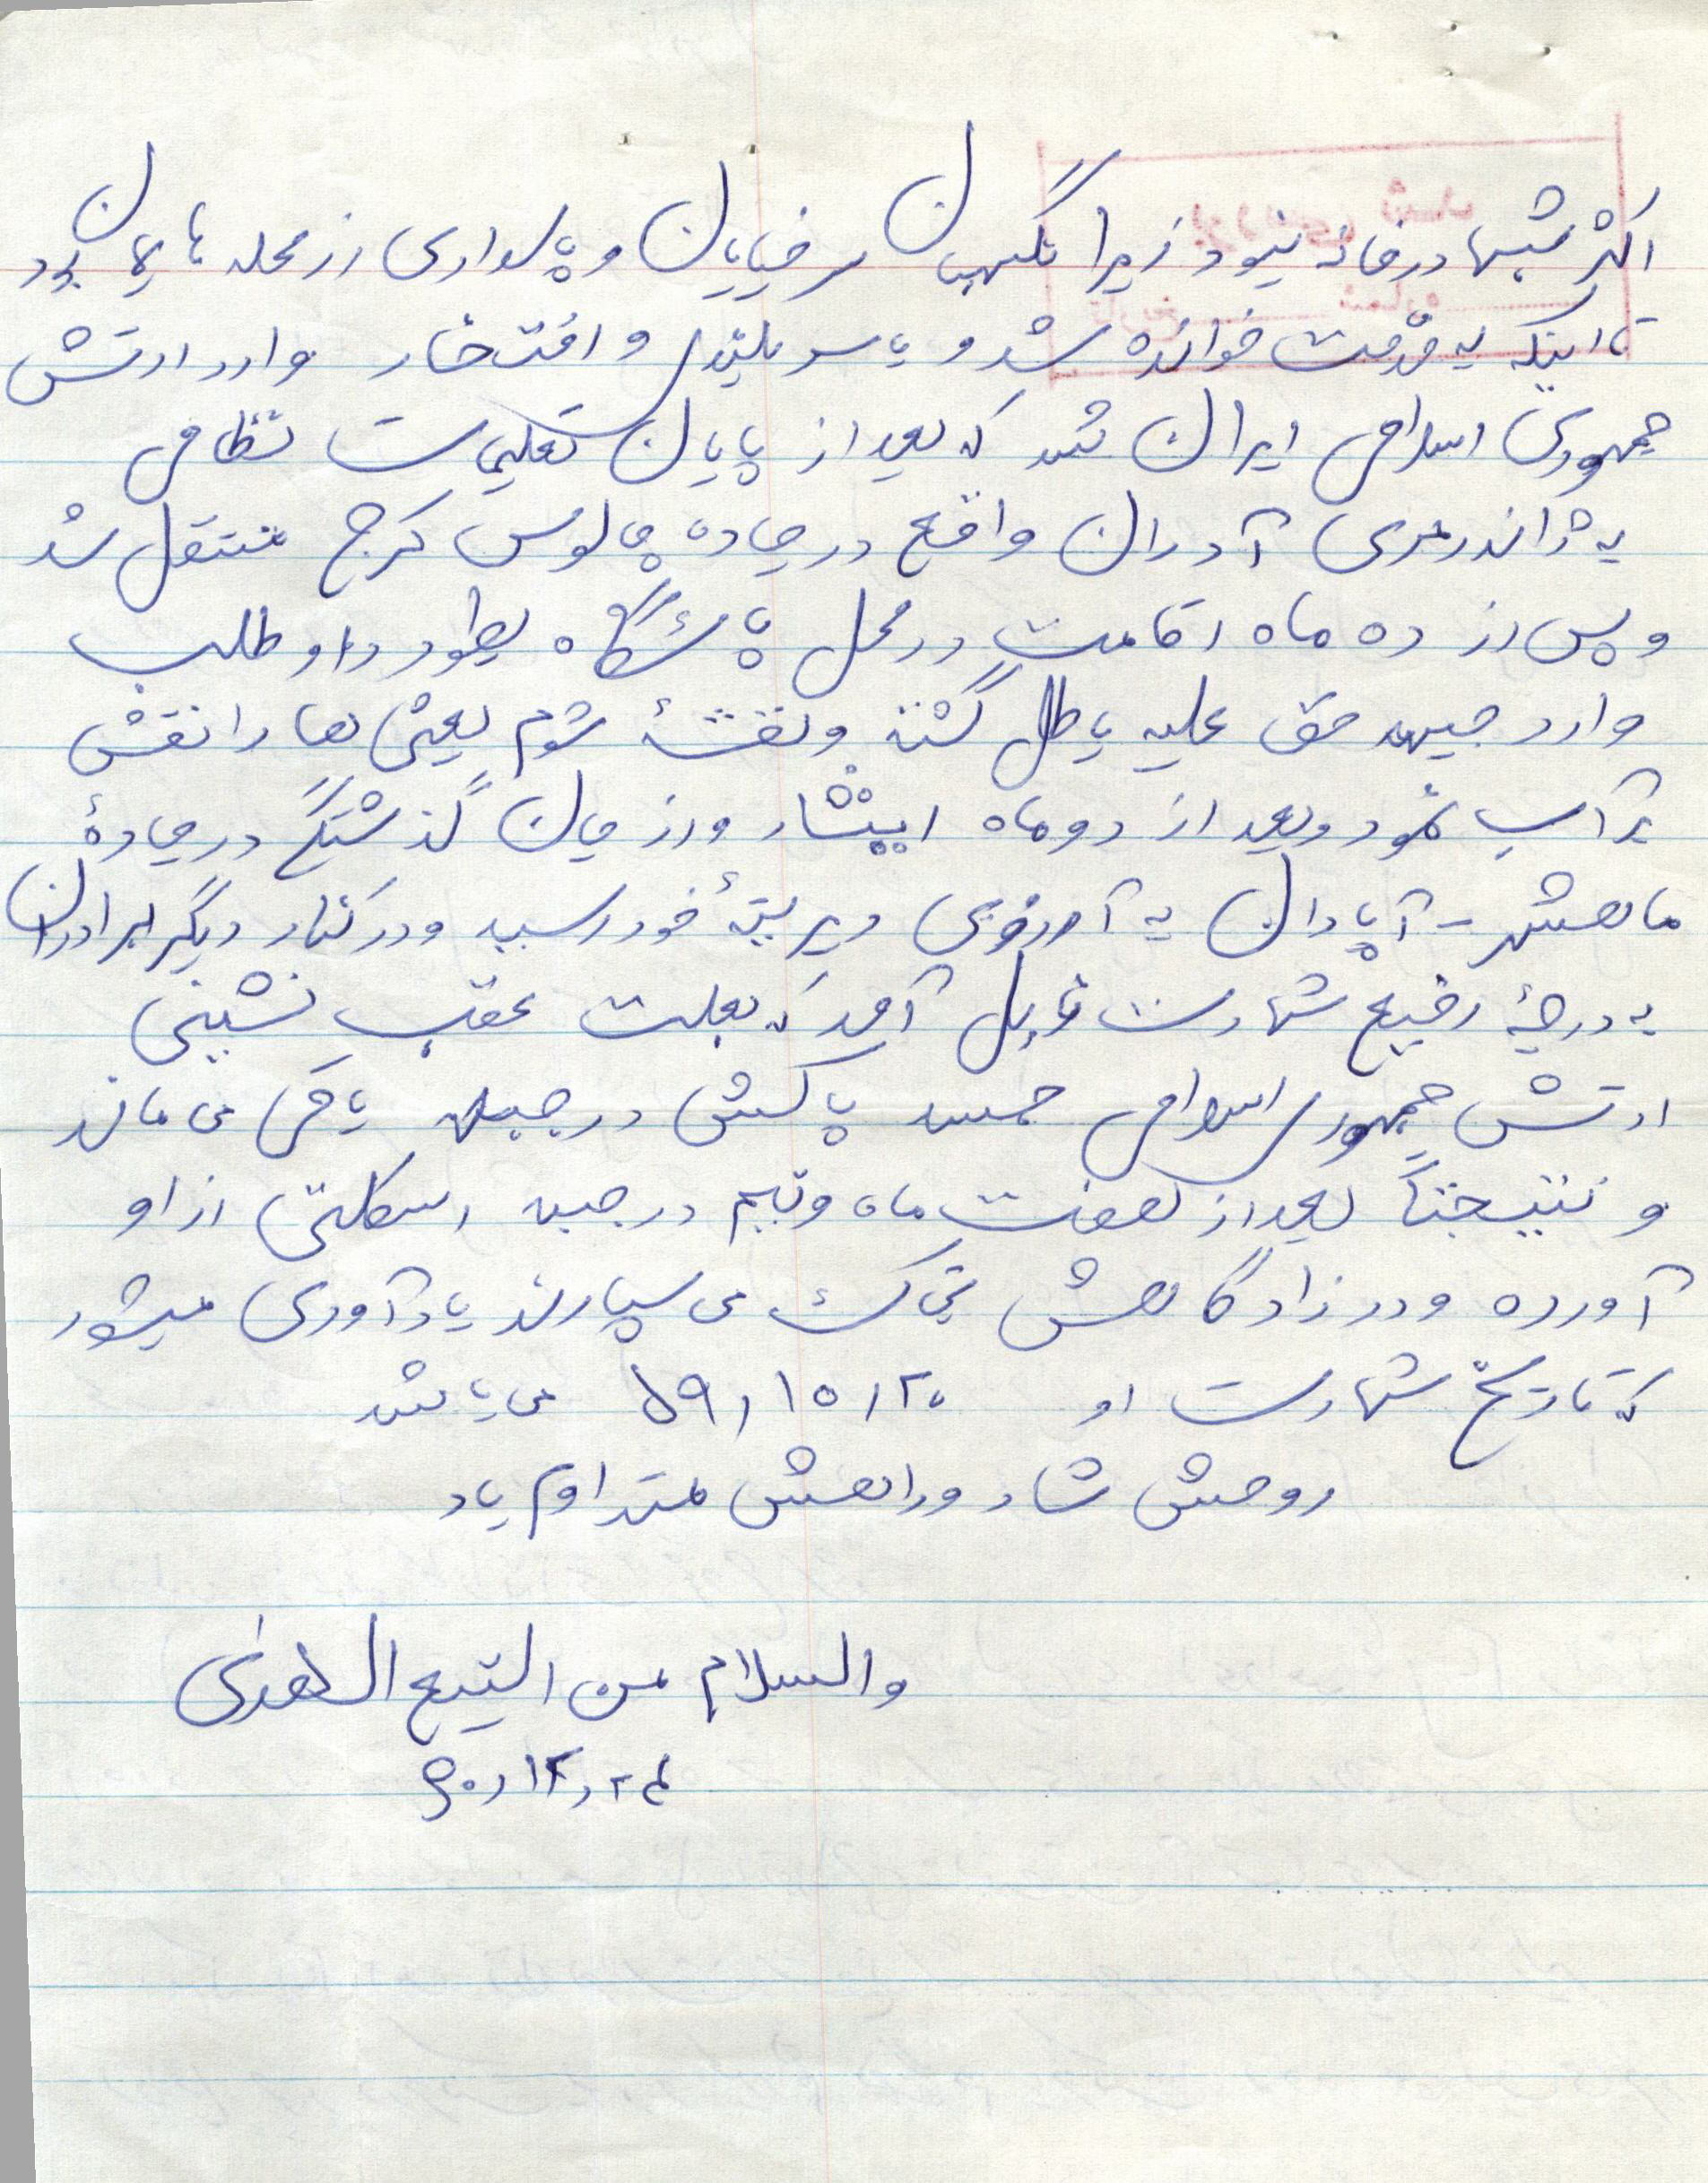 اکثر شبها در خانه نبود زیرا نگهبان سر خیابان و پاسداری از محله هایمان بود
تا اینکه به خدمت خوانده شد و با سربلندی و افتخار وارد ارتش
جمهوری اسلامی ایران شد که بعد از پایان تعلیمات نظامی
به ژاندرمری آدران واقع در جاده چالوس کرج منتقل شد
و پس از ده ماه اقامت در محل پاسگاه بطور داوطلب
وارد جبهه حق علیه باطل گشته و نقشهٔ شوم بعثی ها را نقش
بر آب نمود و بعد از دو ماه ایثار و از جان گذشتگی در جادهٔ
ماهشهر - آبادان به آرزوی دیرینهٔ خود رسید و در کنار دیگر برادران
به درجهٔ رفیع شهادت نایل آمد که بعلت عقب نشینی
ارتش جمهوری اسلامی جسد پاکش در جبهه باقی می ماند
و نتیجتاً بعد از هفت ماه و نیم در جبهه اسکلتی از او
آورده و در زادگاهش بخاک می سپارند یادآوری میشود
که تاریخ شهادت او ۵۹/۱۰/۲۰ می باشد
روحش شاد و راهش مستدام باد
والسلام من التبع الهدی
۶۰/۱۲/۲۴